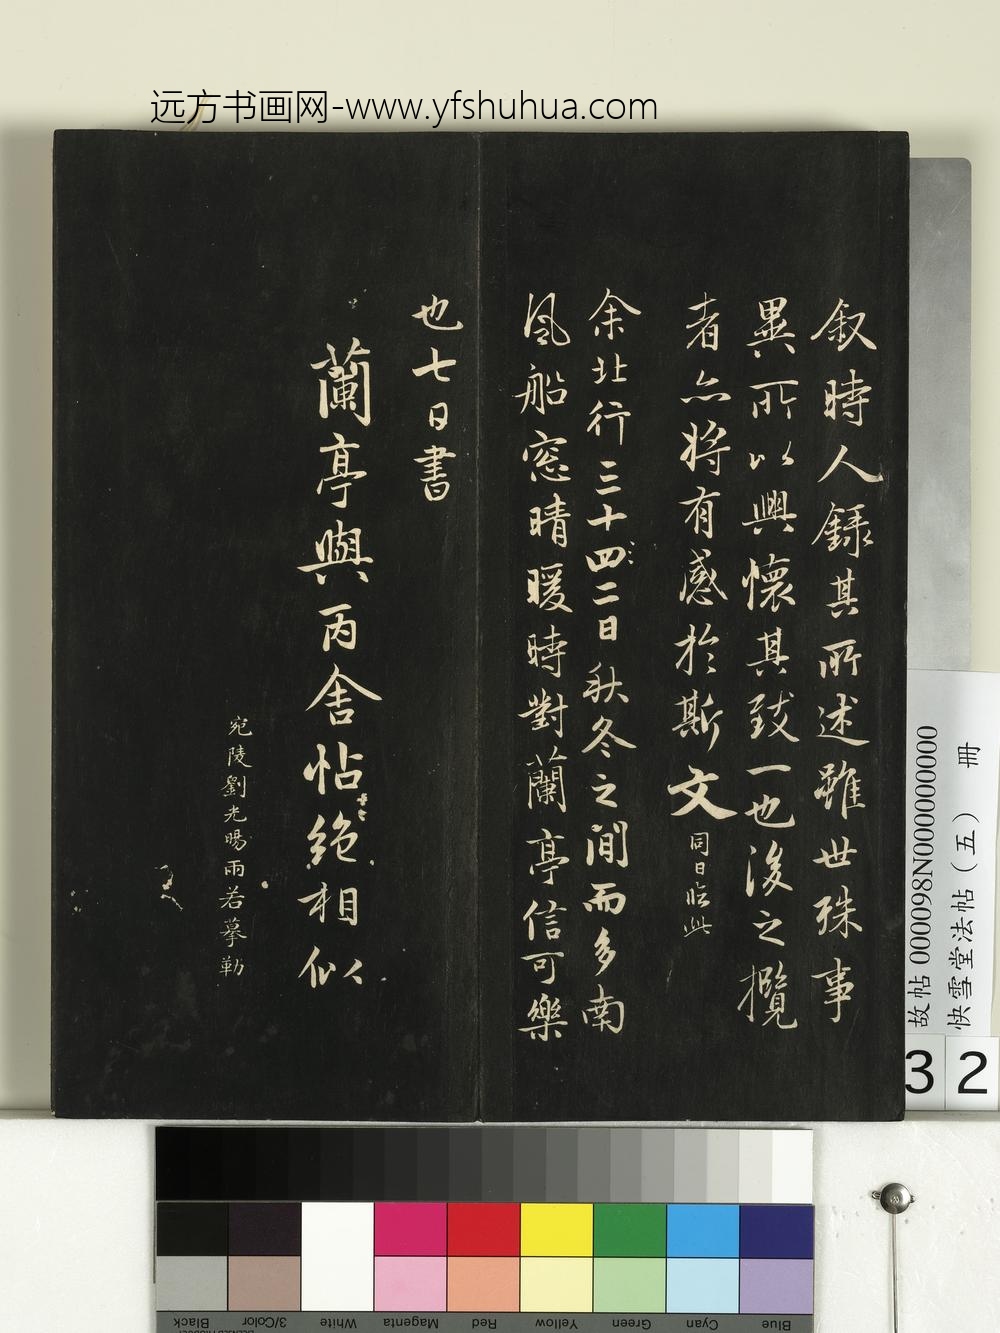 远方书画网-www.yfshuhua.com
叙時人録其所述雖世殊事
異所以興懷其致一也後之攬
者亦將有感於斯文 同日臨此
余北行三十四二日秋冬之間而多南
風船窓晴暖時對蘭亭信可樂
也七日書
蘭亭與丙舍帖絶相似
宛陵劉光暘雨若摹勒
故帖 000098N000000000
快雪堂法帖（五） 冊
32
Black
3/Color
White
Magenta
Red
Yellow
Green
Cyan
Blue